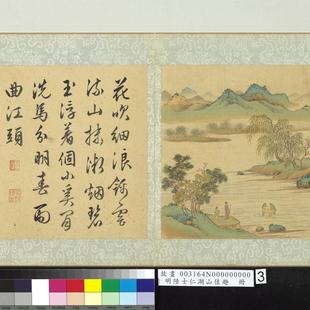 花吹細浪錦雲
流山抹微烟碧
玉浮着個小奚閒
洗馬分明春雨
曲江頭
故畫 003164N000000000 3
明陸士仁湖山佳趣 冊